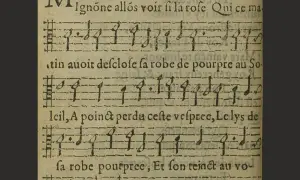 Mignõne allõs voir si la rose Qui ce ma-
tin auoit desclose sa robe de pourpre au So-
leil, A poinct perdu ceste vespree, Le lys de
sa robe pourpree, Et son teinct au vo-